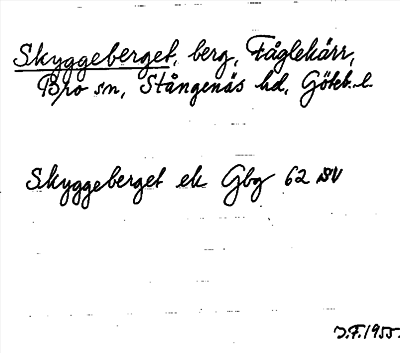 Skyggeberget, berg, Fåglekärr,
Bro sn, Stångenäs hd, Göteb. l.
Skyggeberget ek Gbg 62 NV
J.F. 1955.